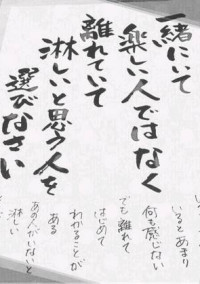 一緒にいて
楽しい人ではなく
離れていて
淋しいと思う人を
選びなさい
いるとあまり
何も感じない
でも離れて
はじめて
わかることが
ある
あの人がいないと
淋しい